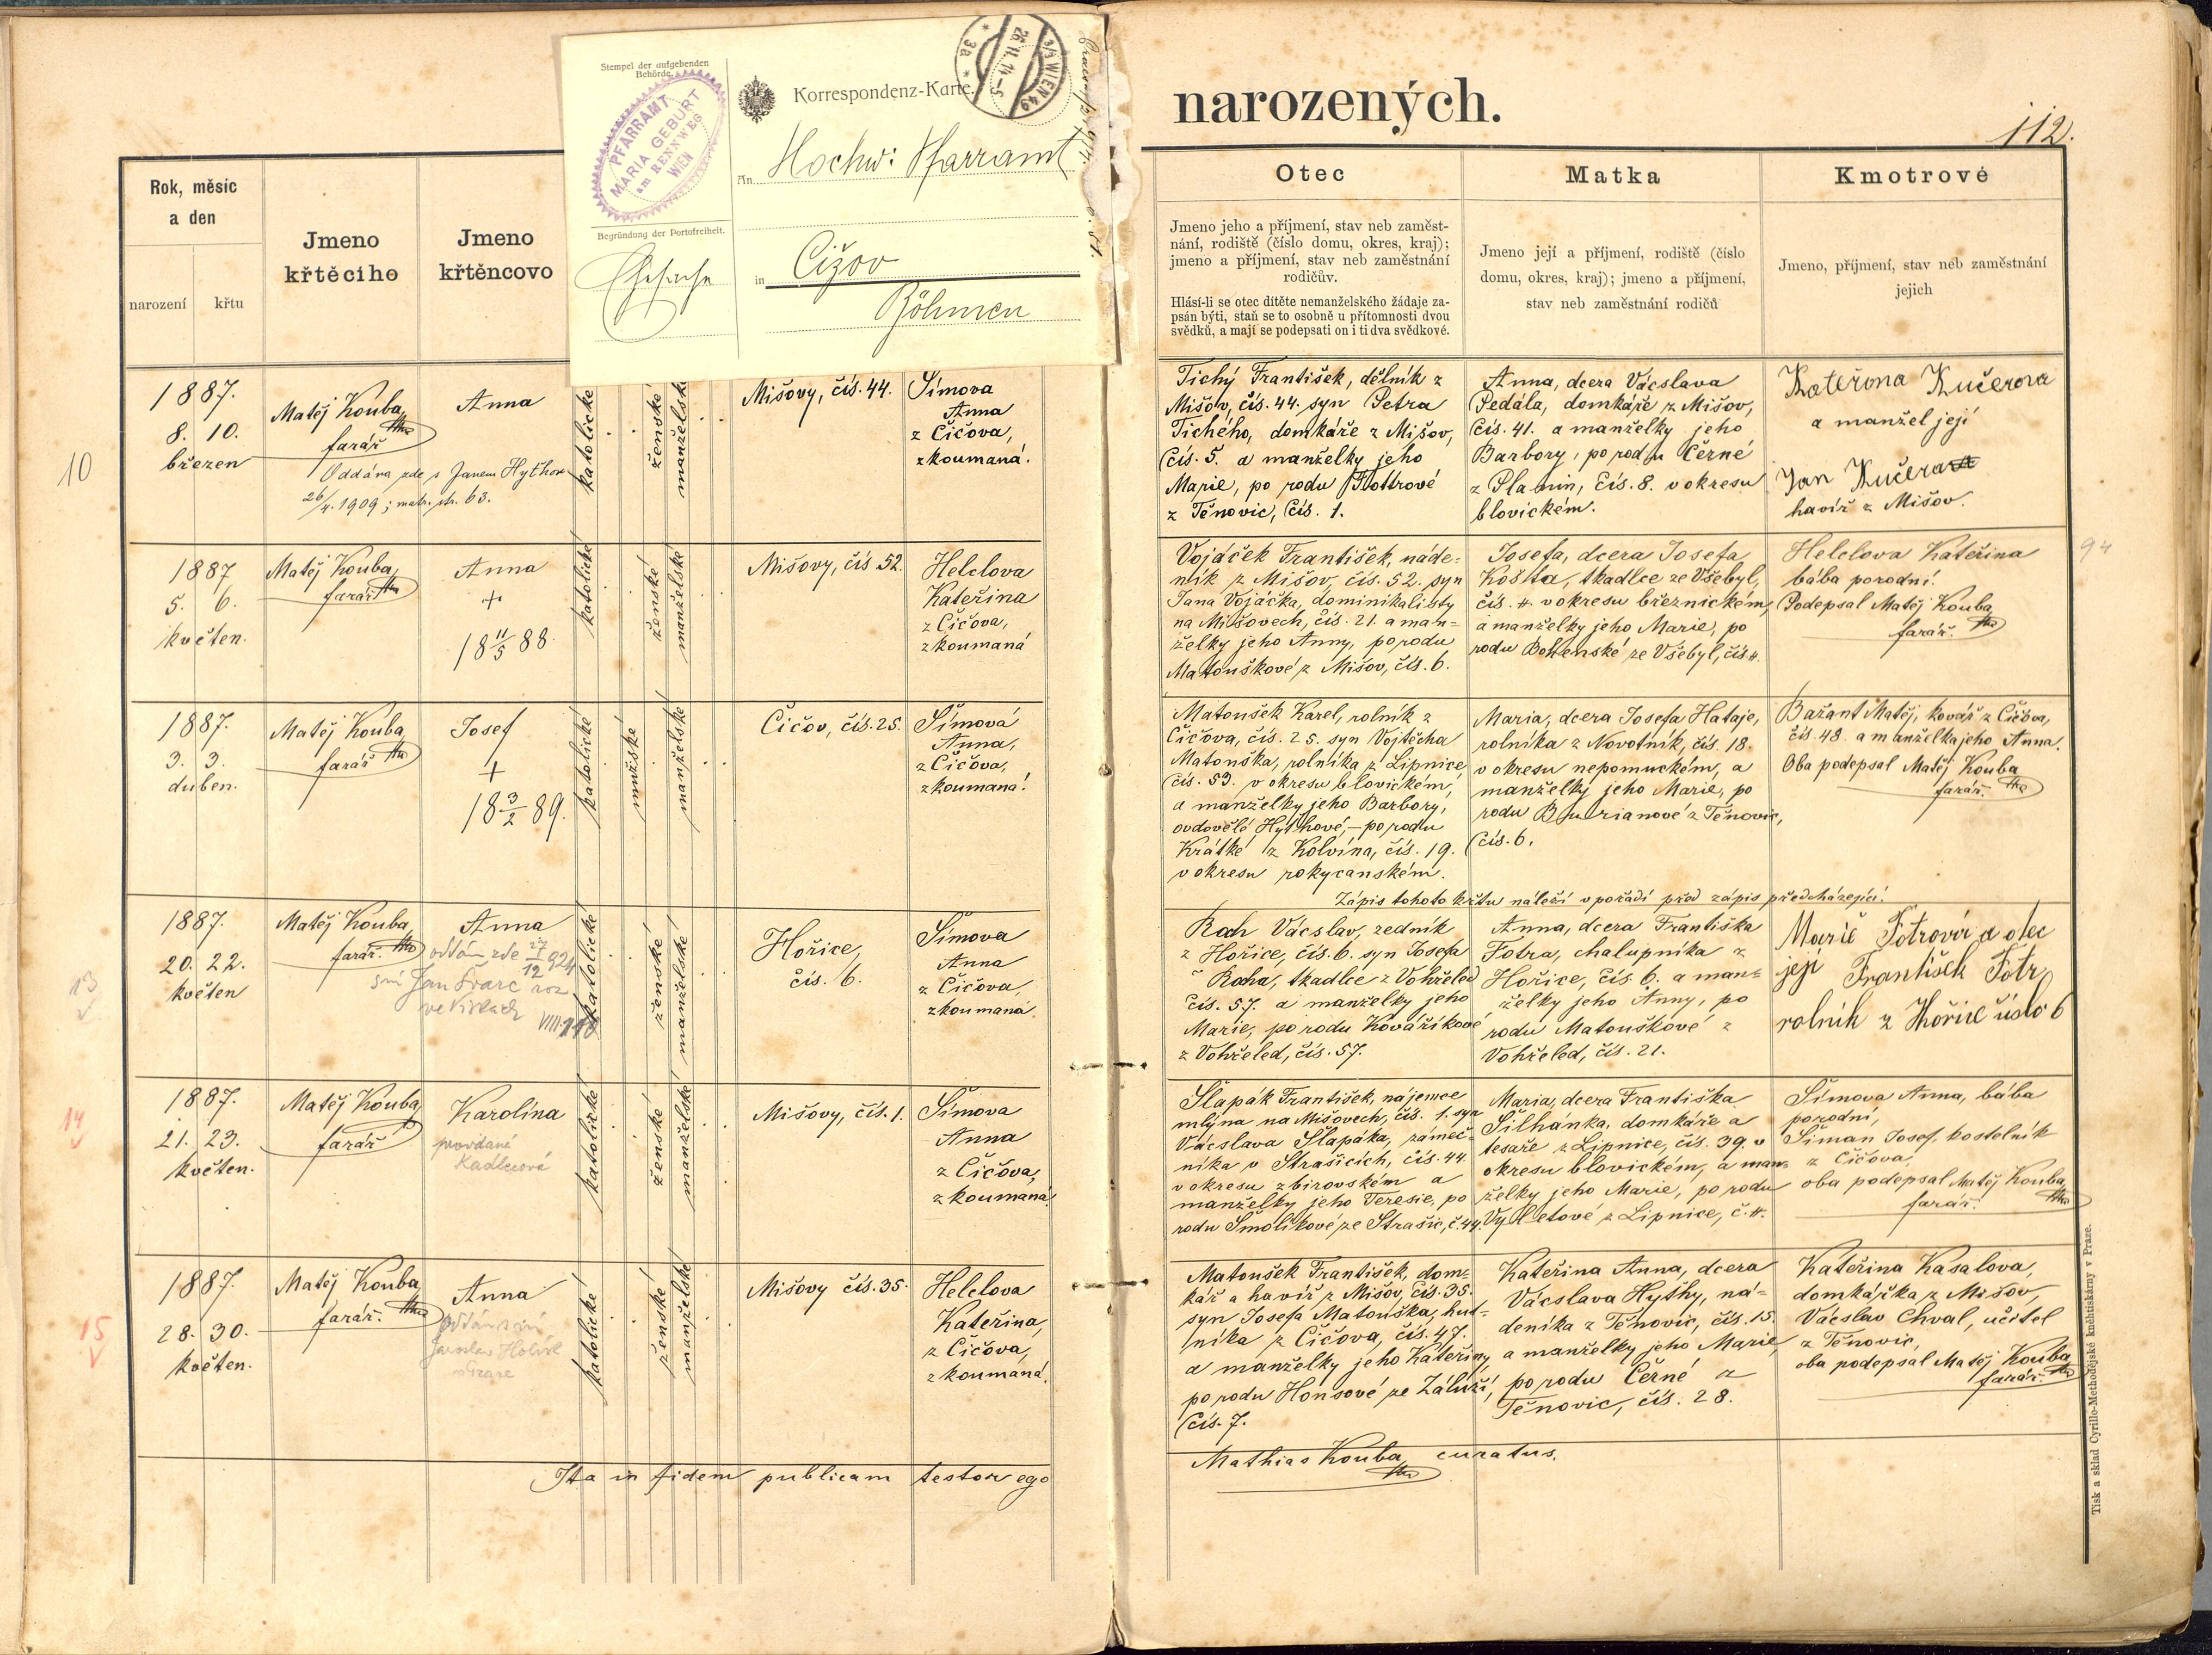 Stempel der aufgebenden
Behörde.
PFARRAMT
MARIA GEBURT
am RENNWEG
WIEN
Begründung der Portofreiheit.
Ehesache
Korrespondenz-Karte.
3/3 WIEN 49
26.11.14-5
* 3a *
An Hochw: Pfarramt
in Čižov
Böhmen
narozených.
112.
Rok, měsíc
a den
narození
křtu
Jmeno
křtěcího
Jmeno
křtěncovo
Otec
Jmeno jeho a příjmení, stav neb zaměst-
nání, rodiště (číslo domu, okres, kraj);
jmeno a příjmení, stav neb zaměstnání
rodičův.
Hlásí-li se otec dítěte nemanželského žádaje za-
psán býti, staň se to osobně u přítomnosti dvou
svědků, a mají se podepsati on i ti dva svědkové.
Matka
Jmeno její a příjmení, rodiště (číslo
domu, okres, kraj); jmeno a příjmení,
stav neb zaměstnání rodičů
Kmotrové
Jmeno, příjmení, stav neb zaměstnání
jejich
10
1887.
8. 10.
březen
Matěj Kouba,
farář
Anna
Oddána zde s Janem Hythou
26/4. 1909; matr. str. 63.
katolické
ženské
manželské
Mišovy, čís. 44.
Šimova
Anna
z Čičova,
zkoumaná.
Tichý František, dělník z
Mišov, čís. 44. syn Petra
Tichého, domkáře z Mišov,
čís. 5. a manželky jeho
Marie, po rodu
z Těnovic, čís. 1.
Anna, dcera Vácslava
Pedála, domkáře z Mišov,
čís. 41. a manželky jeho
Barbory, po rodu Černé
z Planin, čís. 8. v okresu
blovickém.
Kateřona Kučerova
a manžel její
Jan Kučera
havíř z Mišov.
1887
5. 6.
květen.
Matěj Kouba,
farář
Anna
+
18 11/5 88
katolické
ženské
manželské
Mišovy, čís 52.
Helclova
Kateřina
z Čičova,
zkoumaná
Vojáček František, náde-
ník z Mišov, čís. 52. syn
Jana Vojáčka, dominikalisty
na Mišovech, čís. 21. a man-
želky jeho Anny, po rodu
Matouškové z Mišov, čís. 6.
Josefa, dcera Josefa
Košta, tkadlce ze Všebyl,
čís. 4. v okresu březnickém,
a manželky jeho Marie, po
rodu ze Všebyl, čís 4.
Helclova Kateřina
bába porodní.
Podepsal Matěj Kouba
farář.
94
1887.
3. 3.
duben.
Matěj Kouba,
farář
Josef
+
18 3/2 89.
katolické
mužské
manželské
Čičov, čís. 25.
Šimová
Anna,
z Čičova,
zkoumaná!
Matoušek Karel, rolník z
Čičova, čís. 25. syn Vojtěcha
Matouška, rolníka z Lipnice
čís. 53. v okresu blovickém,
a manželky jeho Barbory,
ovdovělé Hythové, – po rodu
Krátké z Kolvína, čís. 19.
v okresu rokycanském.
Maria, dcera Josefa Hataje,
rolníka z Novotník, čís. 18.
v okresu nepomuckém, a
manželky jeho Marie, po
rodu Burianové z Těnovic,
čís. 6.
Bažant Matěj, kovář z Čičova,
čís. 48. a manželka jeho Anna.
Oba podepsal Matěj Kouba
farář.
Zápis tohoto křtu náleží v pořádí před zápis předcházející.
13
1887.
20. 22.
květen
Matěj Kouba,
farář.
Anna
oddán zde 27/12 924
Jan Švarc roz
VIII.
katolické
ženské
manželské
Hořice,
čís. 6.
Šimova
Anna
z Čičova,
zkoumaná.
Rach Vácslav, zedník
z Hořice, čís. 6. syn Josefa
Racha, tkadlce z Vohřeled
čís. 57. a manželky jeho
Marie, po rodu Kovaříkové
z Vohřeled, čís. 57.
Anna, dcera Františka
Fotra, chalupníka z
Hořice, čís. 6. a man-
želky jeho Anny, po
rodu Matouškové z
Vohřeled, čís. 21.
Marie Fotrová a otec
její František Fotr
rolník z Hořic číslo 6
14
1887.
21. 23.
květen.
Matěj Kouba,
farář
Karolína
provdaná
Kadlecová
katolické
ženské
manželské
Mišovy, čís. 1.
Šimova
Anna
z Čičova,
zkoumaná.
Šlapák František, nájemce
mlýna na Mišovech, čís. 1. syn
Vácslava Šlapáka, zámeč-
níka v Strašicích, čís. 44.
v okresu zbirovském a
manželky jeho Teresie, po
rodu Smolíkové ze Strašic, č. 44.
Maria, dcera Františka
Šilhánka, domkáře a
tesaře z Lipnice, čís. 39. v
okresu blovickém, a man-
želky jeho Marie, po rodu
Vyletové z Lipnice, č. 4.
Šimova Anna, bába
porodní,
Šiman Josef, kostelník
z Čičova,
oba podepsal Matěj Kouba,
farář.
15
1887.
28. 30.
květen.
Matěj Kouba
farář.
Anna
katolické
ženské
manželské
Mišovy čís. 35.
Helclova
Kateřina,
z Čičova,
zkoumaná.
Matoušek František, dom-
kář a havíř z Mišov, čís. 35.
syn Josefa Matouška, hut-
níka z Čičova, čís. 47.
a manželky jeho Kateřiny,
po rodu Honsové ze Záluží,
čís. 7.
Kateřina Anna, dcera
Vácslava Hythy, ná-
deníka z Těnovic, čís. 15.
a manželky jeho Marie,
po rodu Černé z
Těnovic, čís. 28.
Kateřina Kasalova,
domkářka z Mišov,
Vácslav Chval, učitel
z Těnovic,
oba podepsal Matěj Kouba
farář.
Ita in fidem publicam testor ego
Mathias Kouba, curatus.
Tisk a sklad Cyrillo-Methodějské kněhtiskárny v Praze.